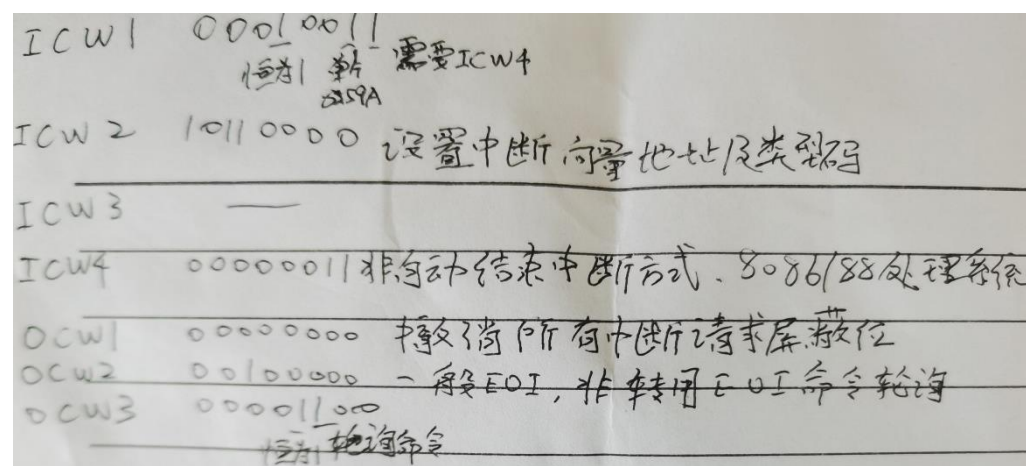 ICW1 00010011
恒为1 单片 需要ICW4
8259A
ICW2 10110000 设置中断向量地址及类型码
ICW3 —
ICW4 00000011 非自动结束中断方式、8086/88处理系统
OCW1 00000000 撤消所有中断请求屏蔽位
OCW2 00100000 一般EOI,非专用EOI命令轮询
OCW3 00001100
恒为1 轮询命令